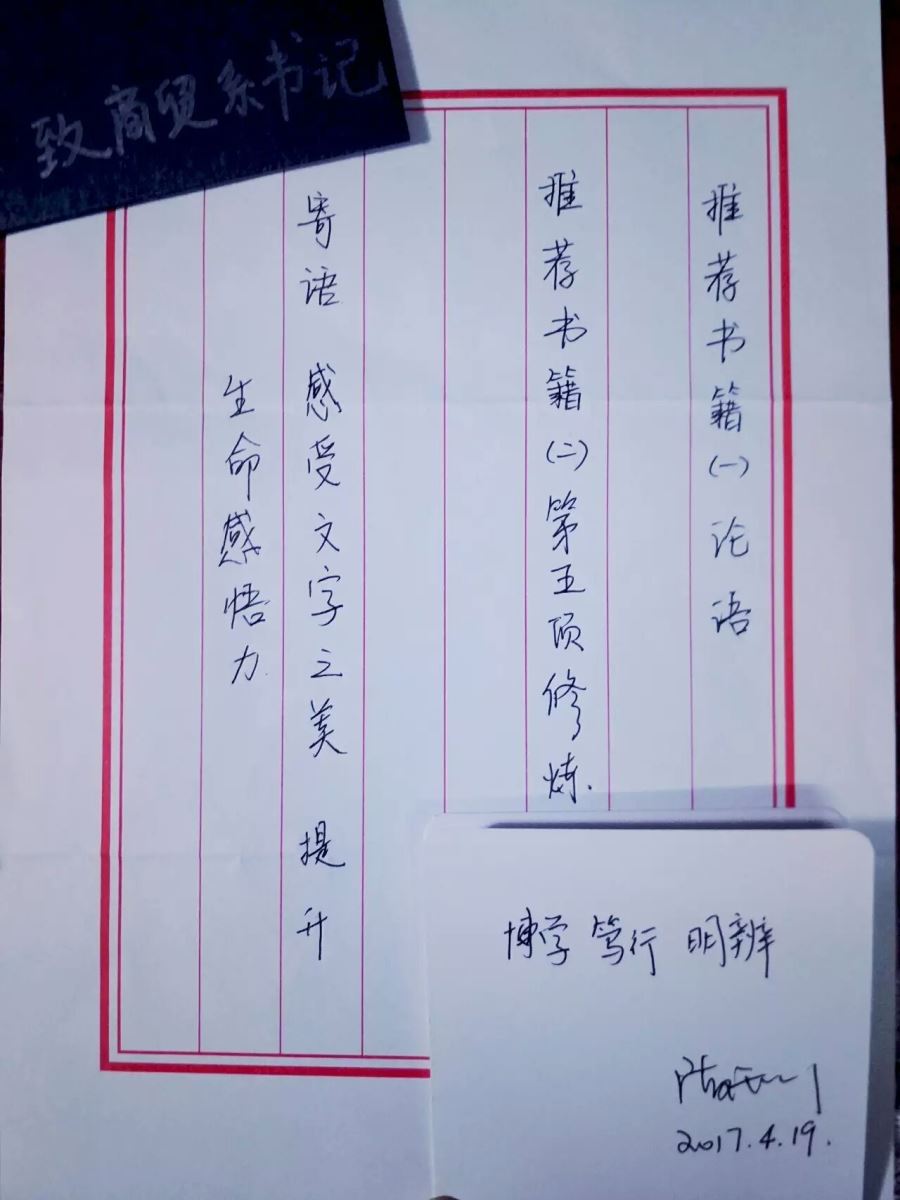 致商贸系书记
推荐书籍(一) 论语
推荐书籍(二) 第五项修炼.
寄语 感受文字之美 提升
生命感悟力
博学 笃行 明辨
2017.4.19.